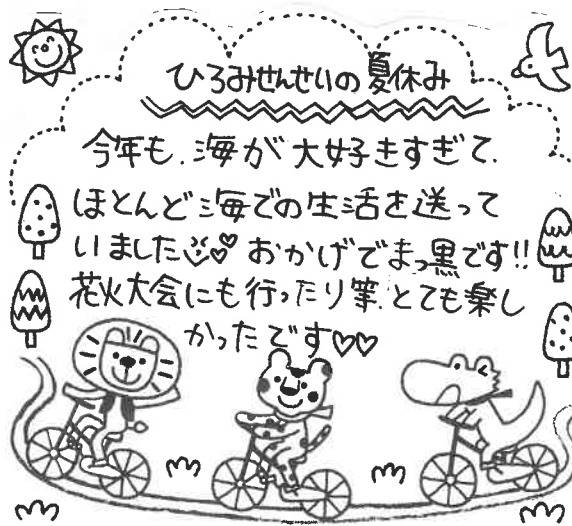 ひろみせんせいの夏休み
今年も、海が大好きすぎて、
ほとんど海での生活を送って
いました♡♡おかげでまっ黒です!!
花火大会にも行ったり等、とても楽し
かったです♡♡